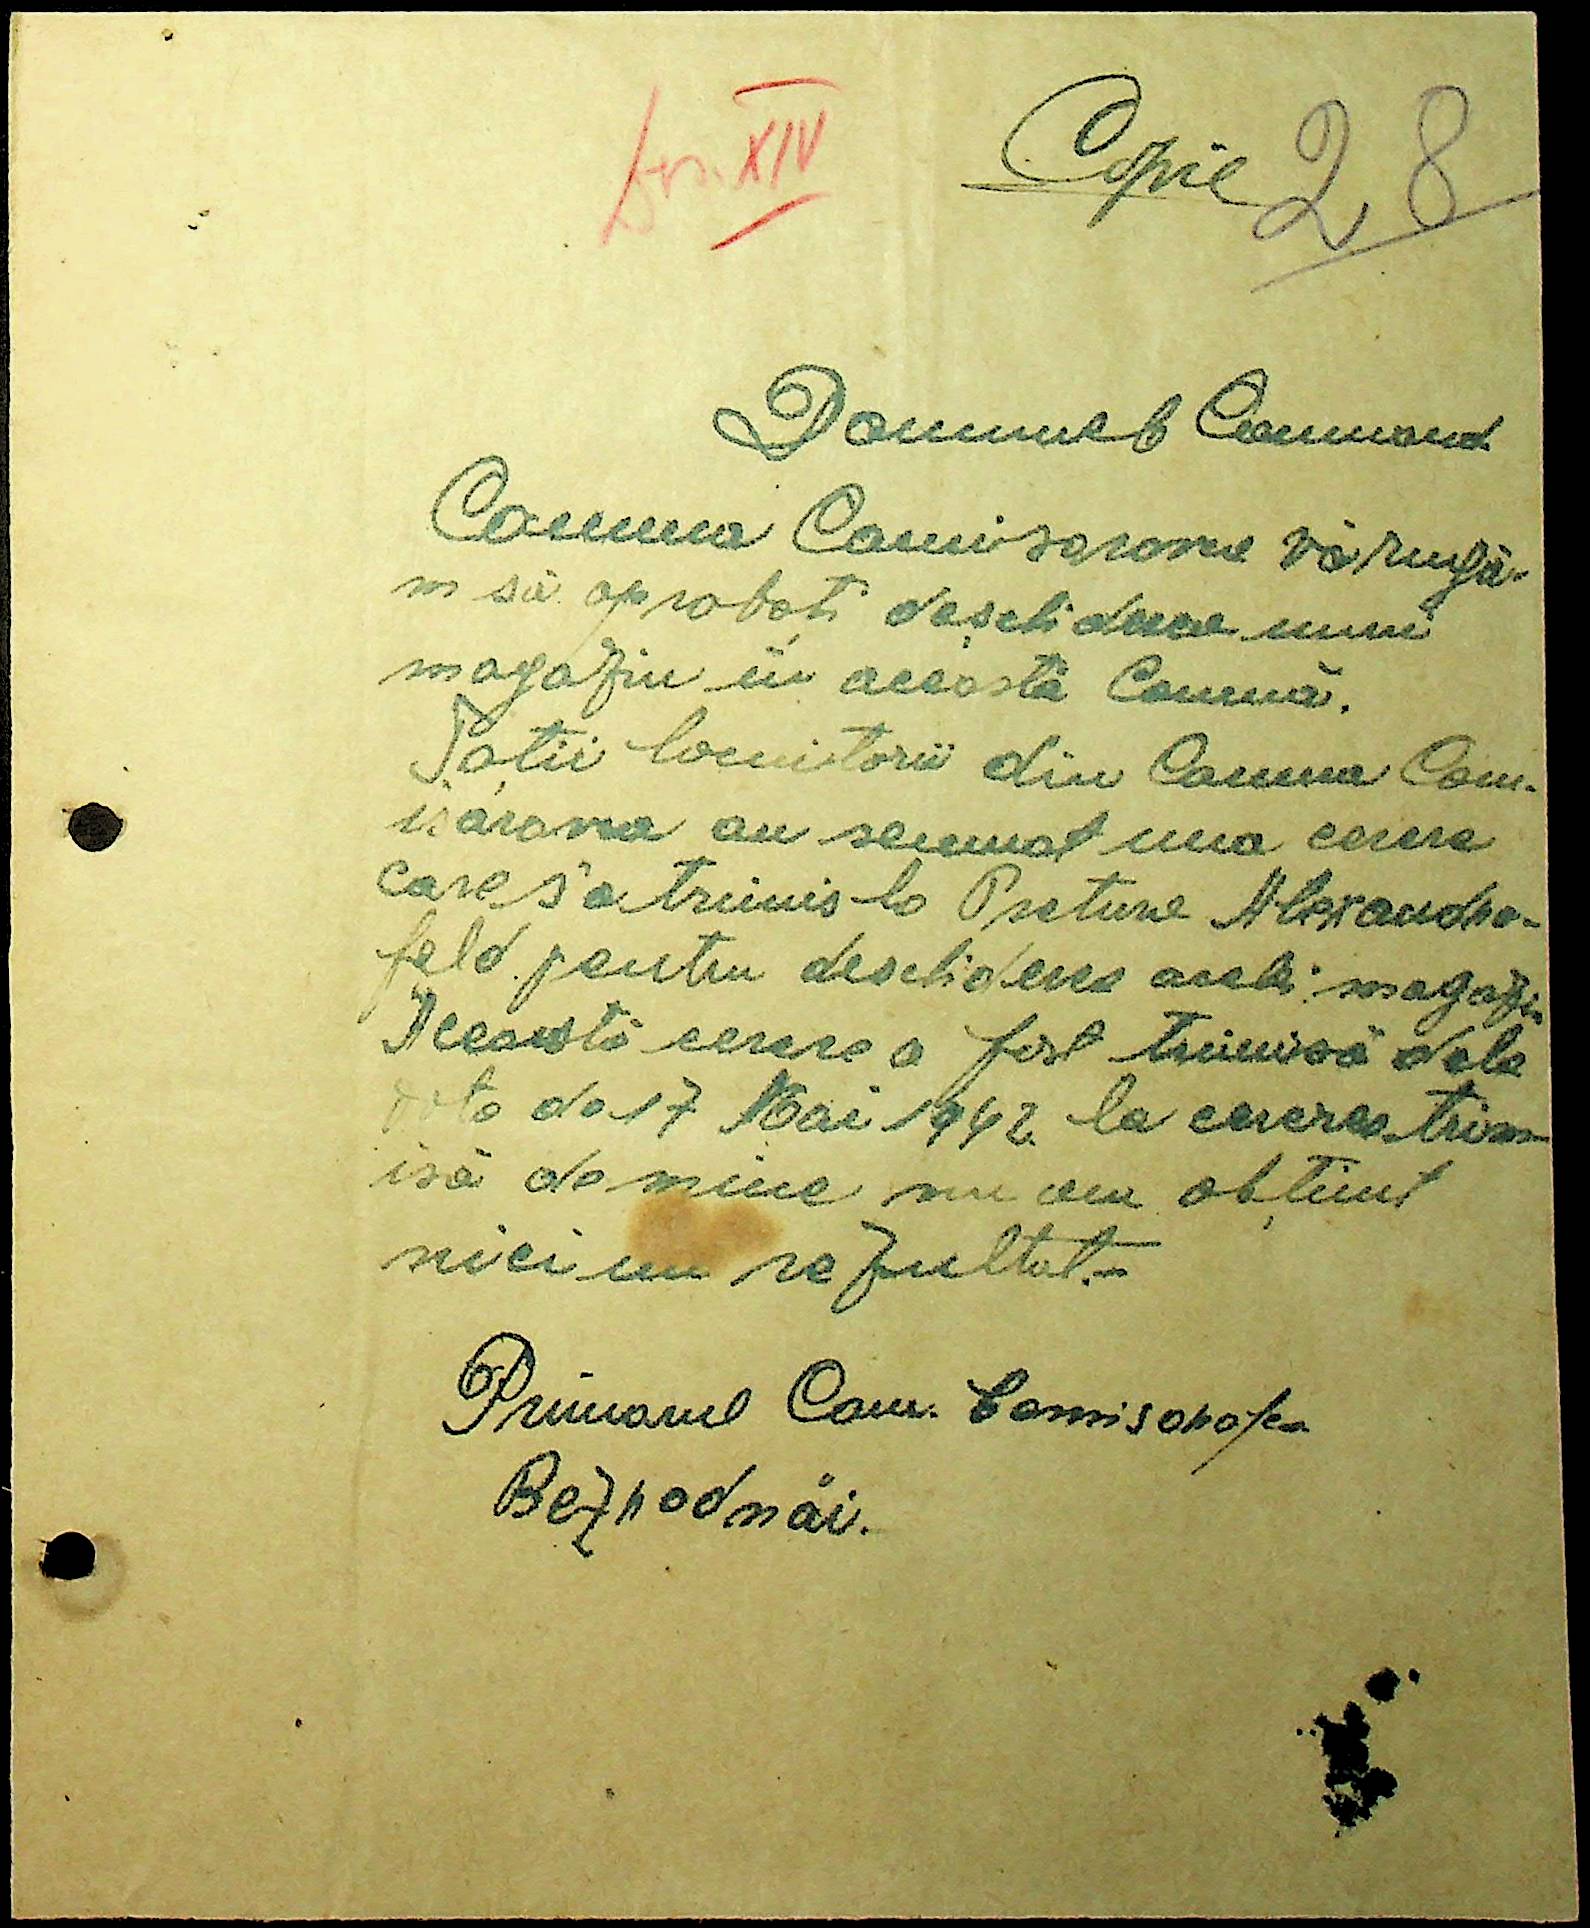 dos. XIV
Copie 28
Domnule Comand.
Comuna Comisarovca vă rugă-
m să aprobați deschiderea unui
magazin în această Comună.
Toții locuitorii din Comuna Com-
isarovca au semnat una cerere
care s'a trimis la Pretura Alexandro-
feld pentru deschiderea acelui magazin
Această cerere a fost trimisă dela
data de 17 Mai 1942 la cererea trim-
isă de mine nu am obținut
nici un rezultat.-
Primarul Com. Comisarofca
Bezrodnâi.